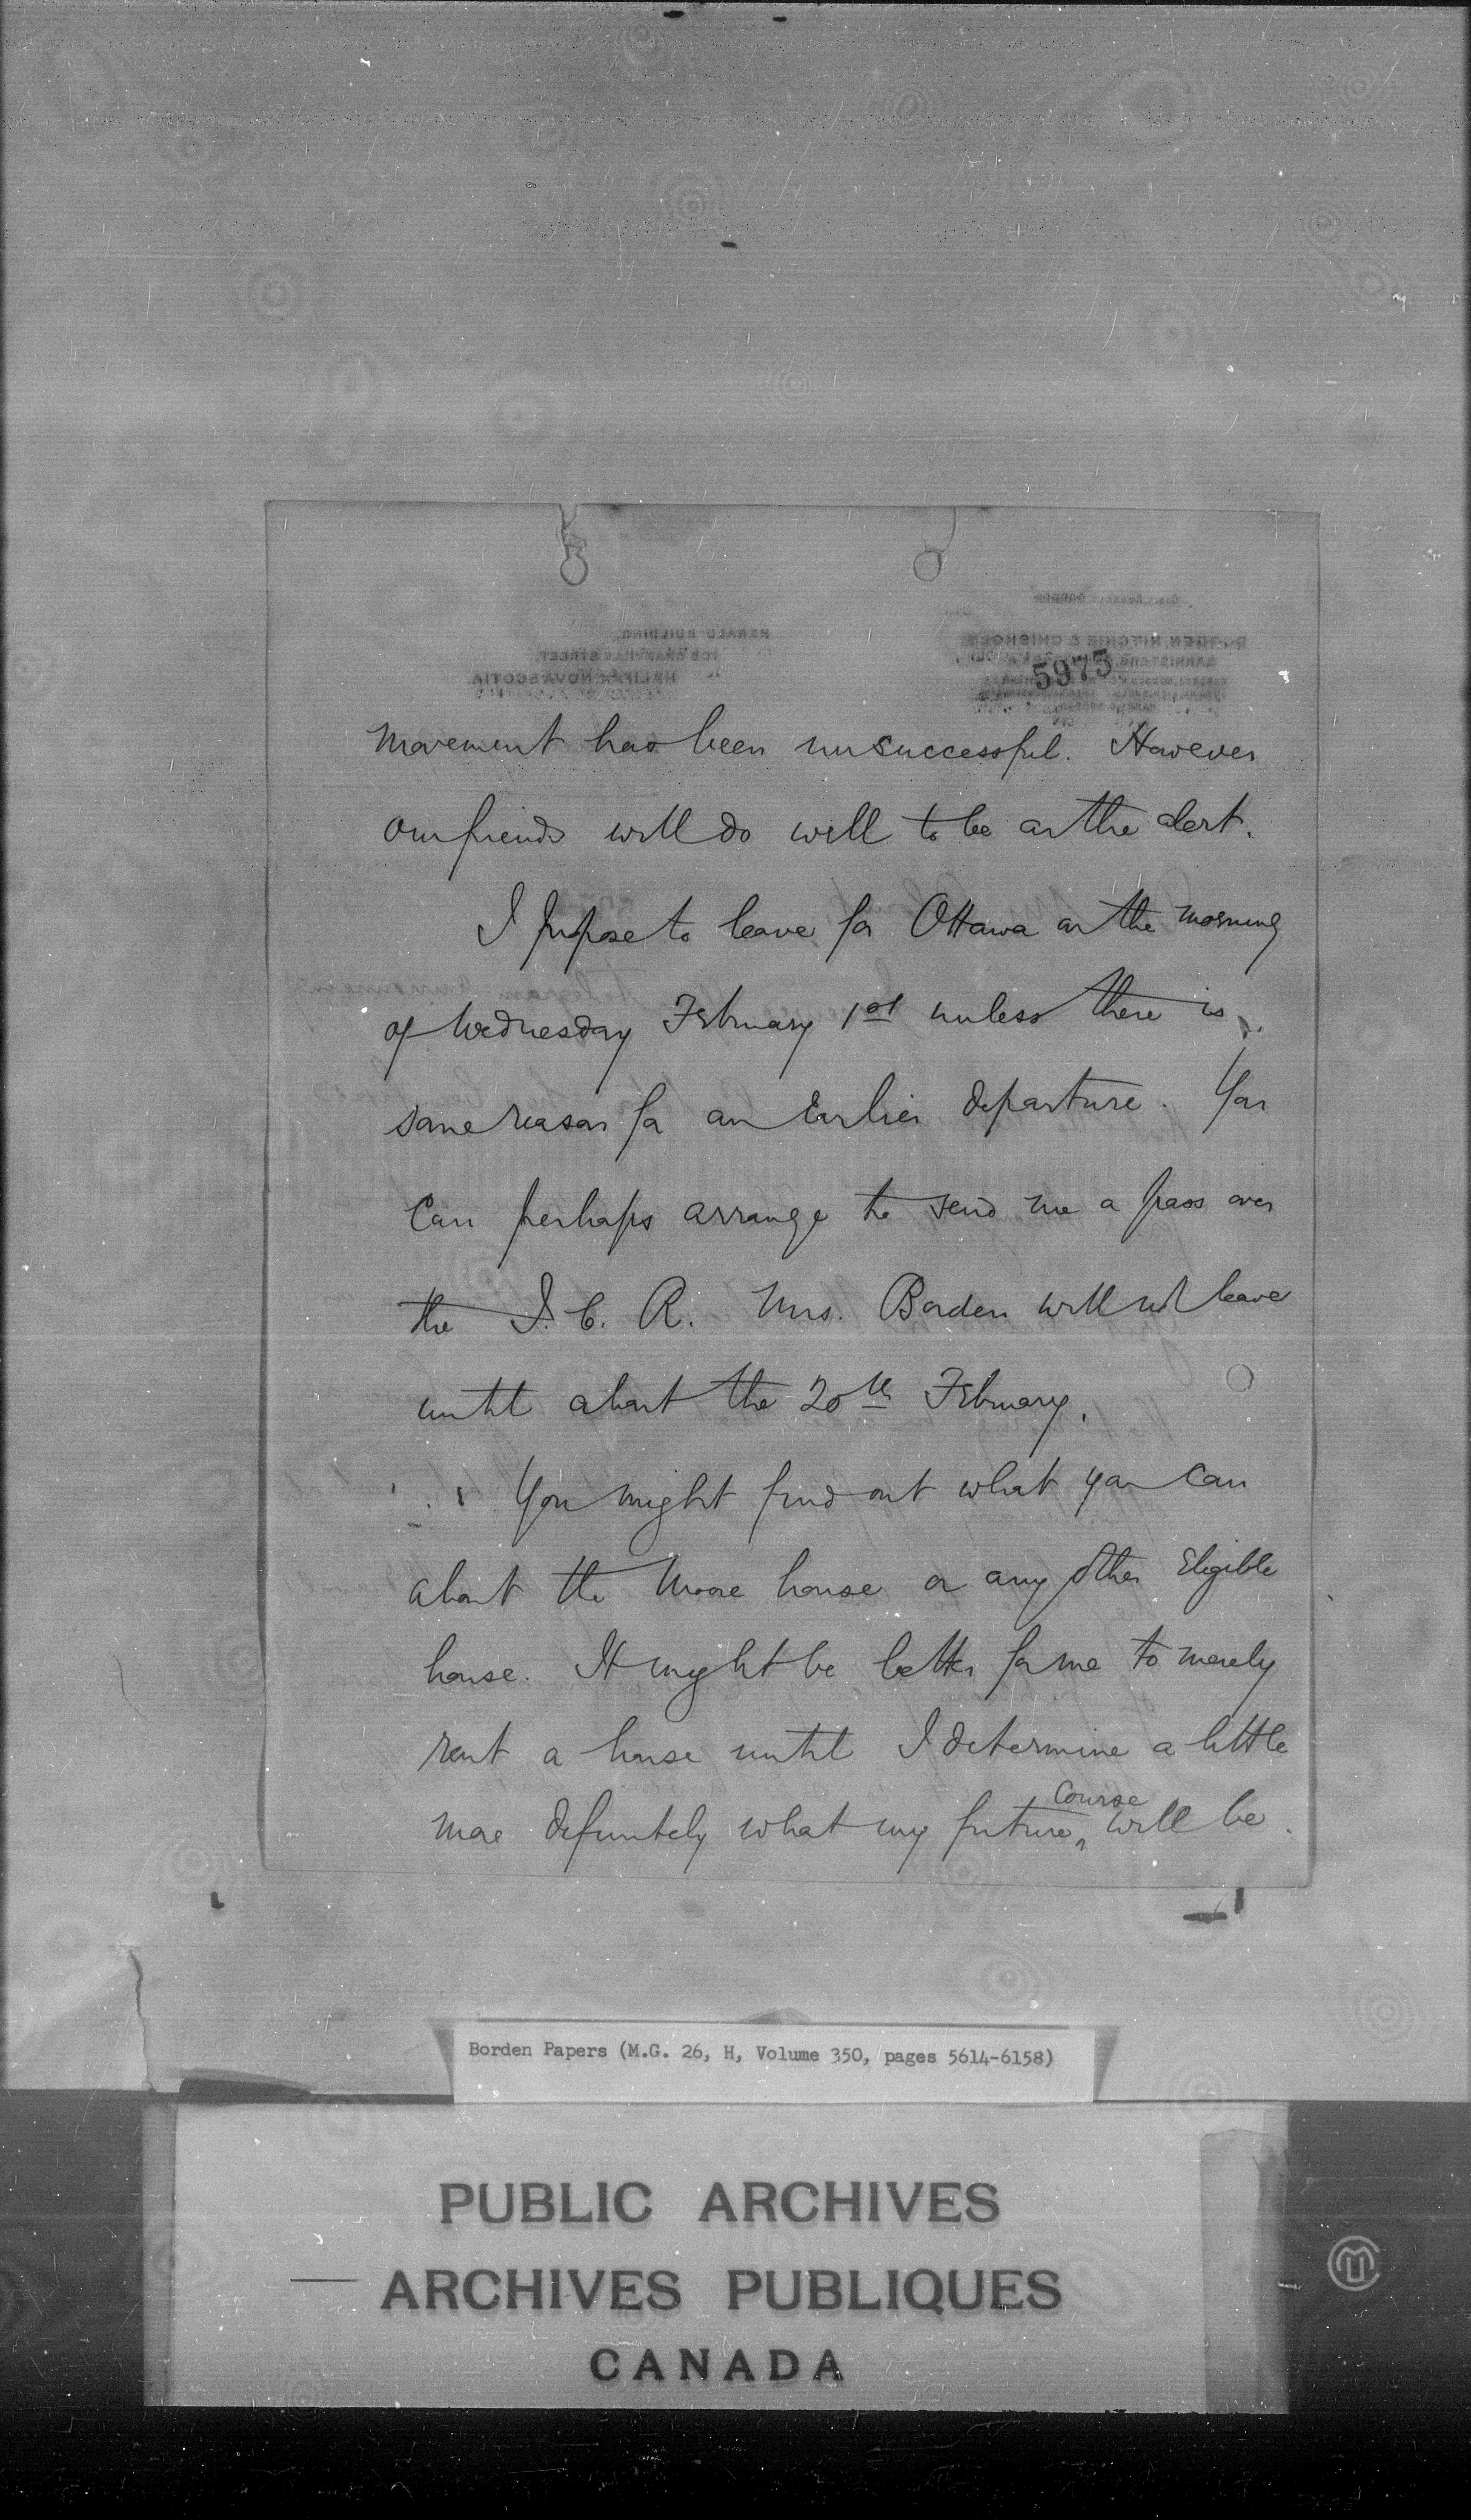 5975
movement has been unsuccessful. However
our friends will do well to be on the alert.
I propose to leave for Ottawa on the morning
of Wednesday February 1st unless there is
some reason for an Earlier departure. You
Can perhaps arrange to send me a pass over
the I. C. R. Mrs. Borden will not leave
until about the 20th February.
You might find out what you can
about the Moore house or any other Eligible
house. It might be better for me to merely
rent a house until I determine a little
more definitely what my future ^ Course will be.
Borden Papers (M.G. 26, H, Volume 350, pages 5614-6158)
PUBLIC ARCHIVES
ARCHIVES PUBLIQUES
CANADA